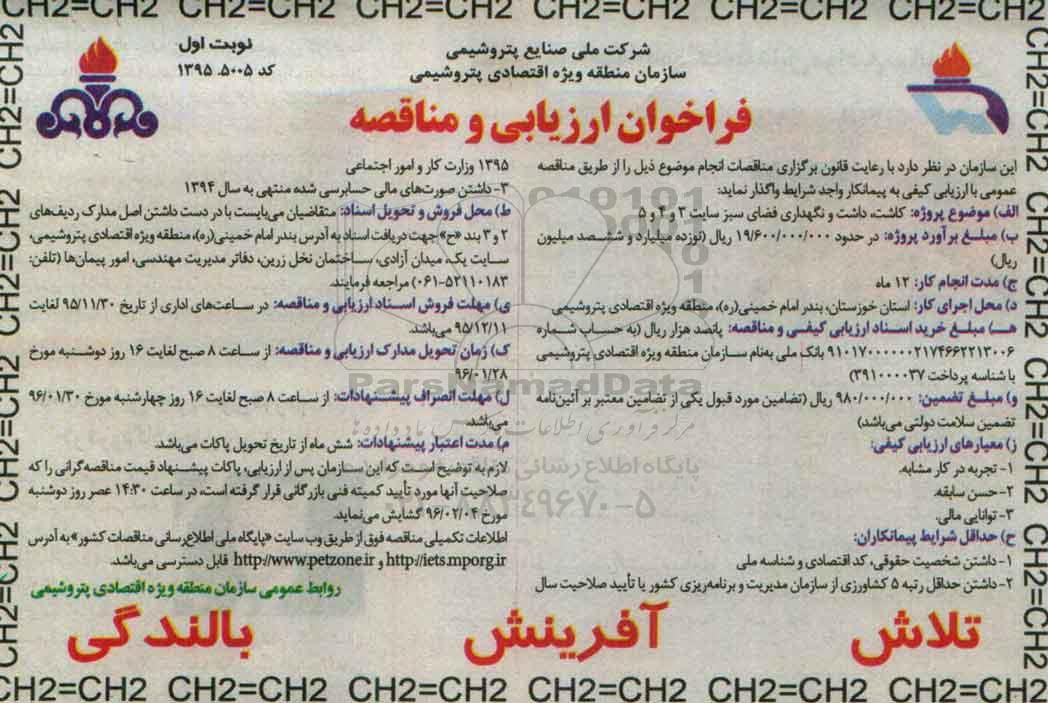 CH2=CH2 CH2=CH2 CH2=CH2 CH2=CH2 CH2=CH2 CH2=CH2
نوبت اول
کد ۵۰۰۵. ۱۳۹۵
شرکت ملی صنایع پتروشیمی
سازمان منطقه ویژه اقتصادی پتروشیمی
فراخوان ارزیابی و مناقصه
این سازمان در نظر دارد با رعایت قانون برگزاری مناقصات انجام موضوع ذیل را از طریق مناقصه
عمومی با ارزیابی کیفی به پیمانکار واجد شرایط واگذار نماید:
الف) موضوع پروژه: کاشت، داشت و نگهداری فضای سبز سایت ۳ و ۴ و ۵
ب) مبلغ برآورد پروژه: در حدود ۱۹/۶۰۰/۰۰۰/۰۰۰ ریال (نوزده میلیارد و ششصد میلیون
ریال)
ج) مدت انجام کار: ۱۲ ماه
د) محل اجرای کار: استان خوزستان، بندر امام خمینی(ره)، منطقه ویژه اقتصادی پتروشیمی
هـ) مبلغ خرید اسناد ارزیابی کیفی و مناقصه: پانصد هزار ریال (به حساب شماره
۹۱۰۱۷۰۰۰۰۰۰۲۱۷۴۶۶۲۲۱۳۰۰۶ بانک ملی به‌نام سازمان منطقه ویژه اقتصادی پتروشیمی
با شناسه پرداخت ۳۹۱۰۰۰۰۳۷)
و) مبلغ تضمین: ۹۸۰/۰۰۰/۰۰۰ ریال (تضامین مورد قبول یکی از تضامین معتبر بر آئین‌نامه
تضمین سلامت دولتی می‌باشد)
ز) معیارهای ارزیابی کیفی:
۱- تجربه در کار مشابه.
۲- حسن سابقه.
۳- توانایی مالی.
ح) حداقل شرایط پیمانکاران:
۱- داشتن شخصیت حقوقی، کد اقتصادی و شناسه ملی
۲- داشتن حداقل رتبه ۵ کشاورزی از سازمان مدیریت و برنامه‌ریزی کشور یا تأیید صلاحیت سال
۱۳۹۵ وزارت کار و امور اجتماعی
۳- داشتن صورت‌های مالی حسابرسی شده منتهی به سال ۱۳۹۴
ط) محل فروش و تحویل اسناد: متقاضیان می‌بایست با در دست داشتن اصل مدارک ردیف‌های
۲ و ۳ بند «ح» جهت دریافت اسناد به آدرس بندر امام خمینی(ره)، منطقه ویژه اقتصادی پتروشیمی،
سایت یک، میدان آزادی، ساختمان نخل زرین، دفاتر مدیریت مهندسی، امور پیمان‌ها (تلفن:
۰۶۱-۵۲۱۱۰۱۸۳) مراجعه فرمایند.
ی) مهلت فروش اسناد ارزیابی و مناقصه: در ساعت‌های اداری از تاریخ ۹۵/۱۱/۳۰ لغایت
۹۵/۱۲/۱۱ می‌باشد.
ک) زمان تحویل مدارک ارزیابی و مناقصه: از ساعت ۸ صبح لغایت ۱۶ روز دوشنبه مورخ
۹۶/۰۱/۲۸
ل) مهلت انصراف پیشنهادات: از ساعت ۸ صبح لغایت ۱۶ روز چهارشنبه مورخ ۹۶/۰۱/۳۰
می‌باشد.
م) مدت اعتبار پیشنهادات: شش ماه از تاریخ تحویل پاکات می‌باشد.
لازم به توضیح است که این سازمان پس از ارزیابی، پاکات پیشنهاد قیمت مناقصه‌گرانی را که
صلاحیت آنها مورد تأیید کمیته فنی بازرگانی قرار گرفته است، در ساعت ۱۴:۳۰ عصر روز دوشنبه
مورخ ۹۶/۰۲/۰۴ گشایش می‌نماید.
اطلاعات تکمیلی مناقصه فوق از طریق وب سایت «پایگاه ملی اطلاع‌رسانی مناقصات کشور» به آدرس
http://iets.mporg.ir و http://www.petzone.ir قابل دسترسی می‌باشد.
روابط عمومی سازمان منطقه ویژه اقتصادی پتروشیمی
تلاش آفرینش بالندگی
CH2=CH2 CH2=CH2 CH2=CH2 CH2=CH2 CH2=CH2 CH2=CH2
CH2=CH2 CH2=CH2 CH2=CH2 CH2=CH2
CH2=CH2 CH2=CH2 CH2=CH2 CH2=CH2
ParsNamadData
پایگاه اطلاع رسانی